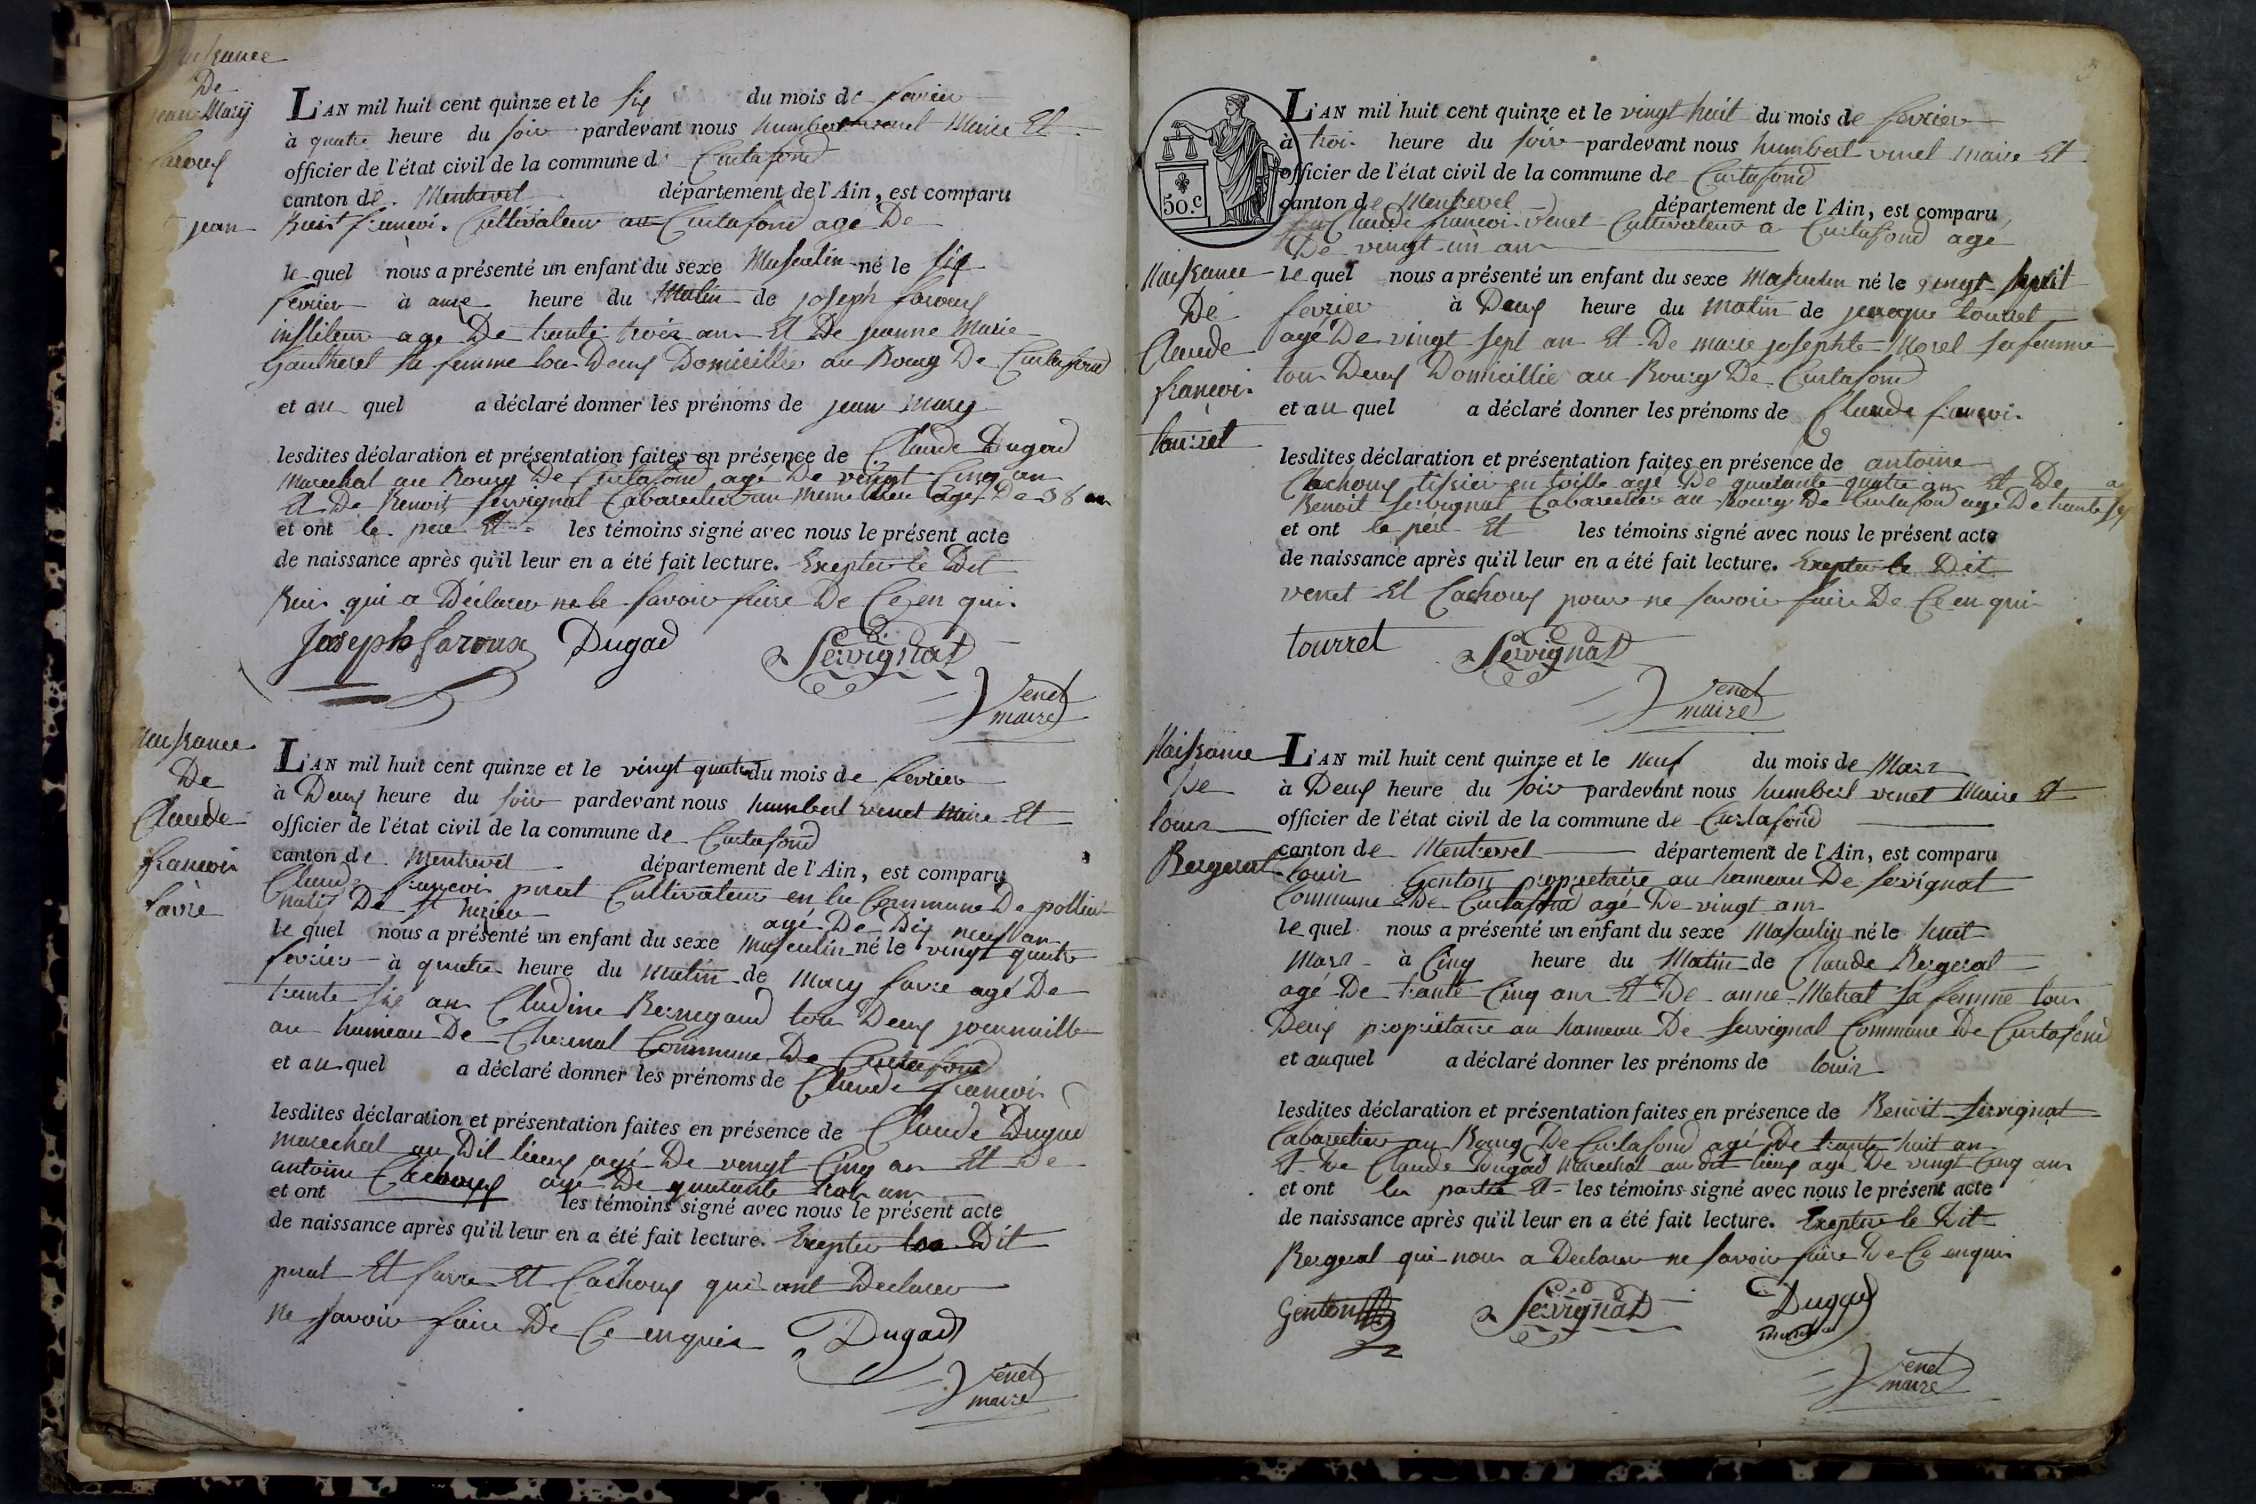 Naissance
De
jean Mary
faroux
jean
L'AN mil huit cent quinze et le six du mois de fevrier
à quatre heure du soir pardevant nous humbert venet Maire Et
officier de l'état civil de la commune de Curtafond
canton de Montrevel département de l'Ain, est comparu
francois Cultivateur au Curtafond agé De
le quel nous a présenté un enfant du sexe Masculin né le six
fevrier à onze heure du Matin de joseph faroux
instituteur agé De trante trois ans Et De jeanne Marie
Gautheret sa femme tou Deux Domicilliés au Bourg De Curtafond
et au quel a déclaré donner les prénoms de jean Mary
lesdites déclaration et présentation faites en présence de Claude Dugad
marechal au Bourg De Curtafond agé De vingt Cinq an
Et De Benoit Servignat Cabaretier au meme lieu agés De 38 an
et ont le pere Et les témoins signé avec nous le présent acte
de naissance après qu'il leur en a été fait lecture. Excepter le Dit
qui a Déclarer ne le savoir faire De Ce en qui.
Joseph faroux Dugad Servignat
Venet
maire
Naissance
De
Claude
francois
favre
L'AN mil huit cent quinze et le vingt quatre du mois de fevrier
à Deux heure du soir pardevant nous humbert venet Maire Et
officier de l'état civil de la commune de Curtafond
canton de Montrevel département de l'Ain, est comparu
Claude francois prat Cultivateur en la Commune De pollieu
natif De St
agé De Dix neuf an
le quel nous a présenté un enfant du sexe masculin né le vingt quatre
fevrier à quatre heure du matin de Mary favre agé De
trante six an Cludine Bernegaud tou Deux journaille
au hameau De Charmal Commune De Curtafond
et au quel a déclaré donner les prénoms de Claude francois
lesdites déclaration et présentation faites en présence de Claude Dugad
marechal au Dit lieux agé De vengt Cinq an Et De
antoine Cachoux agé De quarante trois an
et ont les témoins signé avec nous le présent acte
de naissance après qu'il leur en a été fait lecture. Excepter Dit
prat Et favre Et Cachoux qui ont Declarer
ne savoir faire De Ce enquis Dugad
Venet
maire
50.c
L'AN mil huit cent quinze et le vingt huit du mois de fevrier
à troi. heure du soir pardevant nous humbert venet maire Et
officier de l'état civil de la commune de Curtafond
canton de Montrevel département de l'Ain, est comparu
Claude francoi. venet Cultivateur a Curtafond agé
De vingt un an
Naissance
De
Claude
francoi.
tourret
le quel nous a présenté un enfant du sexe Masculin né le vingt
fevrier à Deux heure du matin de jacque tourret
agé De vingt sept an Et De marie josephte Morel sa femme
tou Deux Domicillié au Bourg De Curtafond
et au quel a déclaré donner les prénoms de Claude francoi.
lesdites déclaration et présentation faites en présence de antoine
Cachoux tissier en toille agé De quarante quatre an Et De
Benoit Servignat Cabaretier au Bourg De Curtafond agé De trante
et ont le pere Et les témoins signé avec nous le présent acte
de naissance après qu'il leur en a été fait lecture. Excepter le Dit
venet Et Cachoux pour ne savoir faire De Ce en qui
tourret Servignat
Venet
maire
Naissance
De
louis
Bergerat
L'AN mil huit cent quinze et le neuf du mois de Mars
à Deux heure du soir pardevant nous humbert venet Maire Et
officier de l'état civil de la commune de Curtafond
canton de Montrevel département de l'Ain, est comparu
louis Genton propretaire au hameau De servignat
Commune De Curtafond agé De vingt ans
le quel nous a présenté un enfant du sexe Masculin né le huit
Mars à Cinq heure du Matin de Claude Bergerat
agé De trante Cinq ans Et De anne Metrat sa femme tou
Deux propriétaire au hameau De Servignat Commune De Curtafond
et auquel a déclaré donner les prénoms de louis
lesdites déclaration et présentation faites en présence de Benoit Servignat
Cabaretier au Bourg De Curtafond agé De trante huit an
Et De Claude Dugad Marechal au dit lieux agé De vingt Cinq ans
et ont la partie Et les témoins signé avec nous le présent acte
de naissance après qu'il leur en a été fait lecture. Excepter le Dit
Bergerat qui nous a Declarer ne savoir faire De Ce enquis
Genton Servignat Dugad
Venet
maire